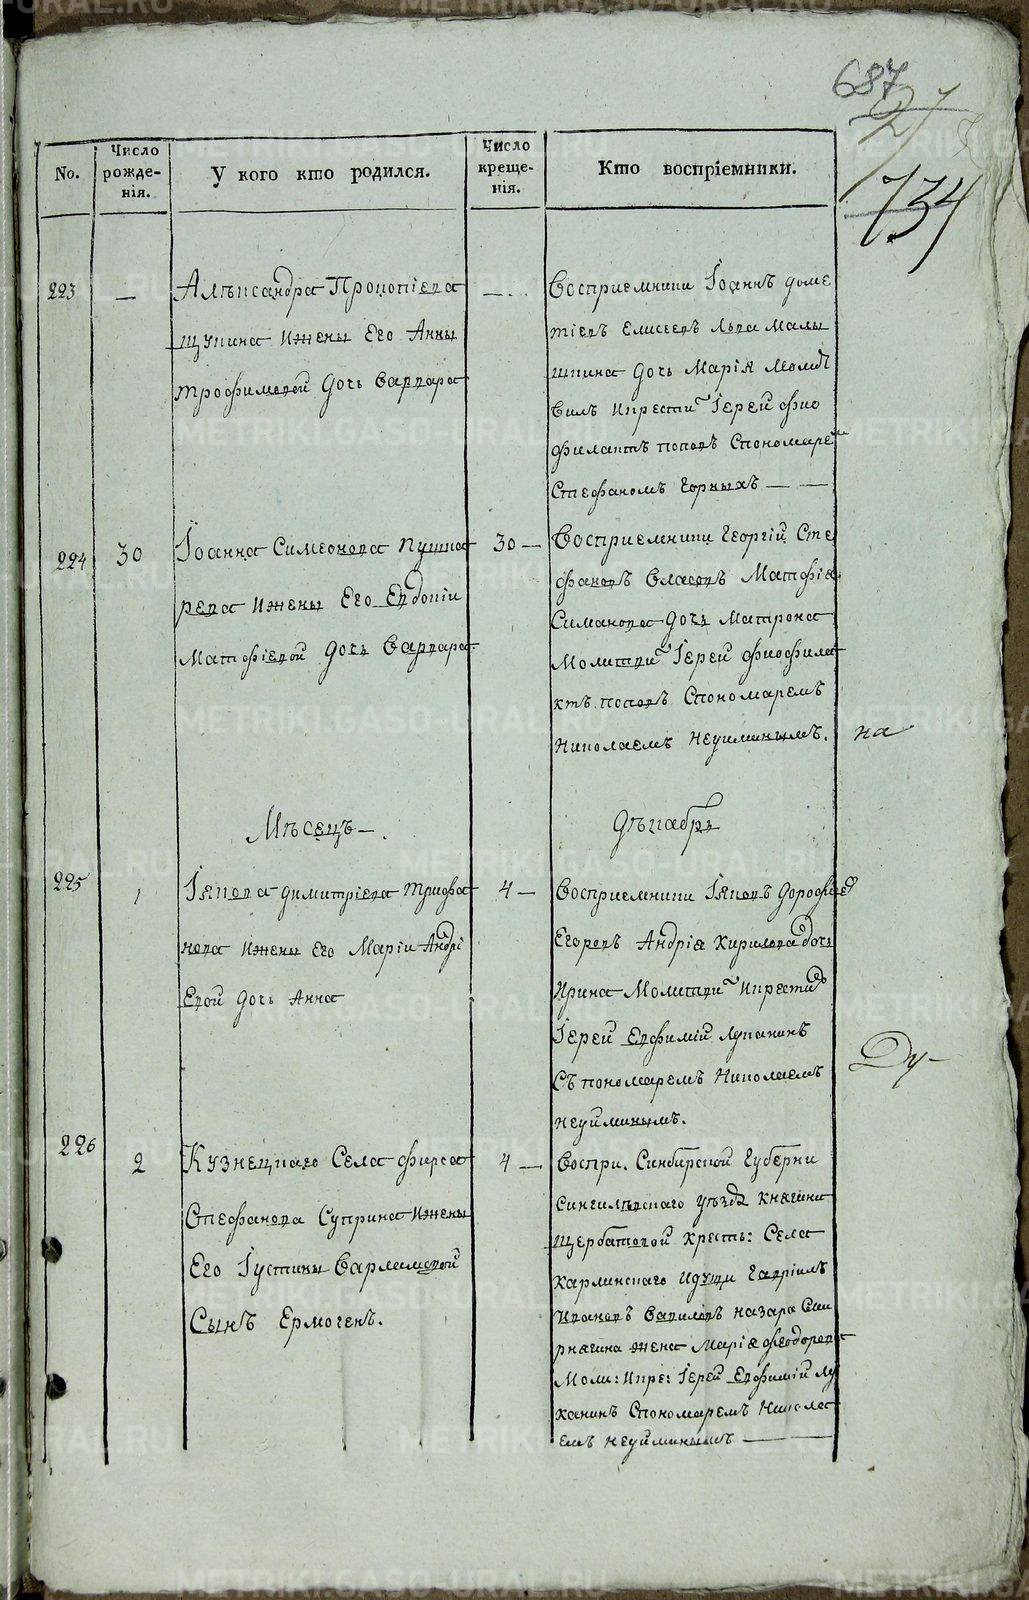 687
27
734
No.
Число рожде-нія.
У кого кто родился.
Число креще-нія.
Кто воспріемники.
223
—
Алѣксандра Прокопіева
щупина Ижены Его Анны
трофимовой дочь Варвара
—
Восприемники Іоаннъ доме
тіевъ Елисеевъ Льва Малы
шкина дочь Марія Молит
вилъ Икрести Іерей фио
филактъ поповъ Спономаре
Стефаномъ Горныхъ — —
224
30
Іоанна Симеонова Пушка
рева Ижены Его Евдокіи
Матфіевой дочь Варвара
30 —
Восприемники Георгій Сте
фановъ Власовъ Матфія
Симанова дочь Матрона
Молитви Іерей фиофила
ктъ поповъ Спономаремъ
Николаемъ Неуйминымъ.
на
Мѣсецъ —
дѣкабрь
225
1
Іякова димитріева трифа
нова Ижены Его Маріи Андрі
Евой дочь Анна
4 —
Восприемники Іяковъ дорофѣев
Егоровъ Андрія Кирилова дочь
Ирина Молитви Икрести
Іерей Евфимій Луканинъ
Съ пономаремъ Николаемъ
неуйминымъ.
Ду-
226
2
Кузнецкаго Села фирса
Стефанова Суприна Ижены
Его Іустины Варламовой
Сынъ Ермогенъ.
4 —
Воспри. Синбирской Губерни
Сингилѣвскаго уѣзда княгини
щербатовой кресть: Села
Карлинскаго Идущи Гавріилъ
Ивановъ Вавиловъ назара
жена Марія феодорова
Моли: Икре: Іерей Евфимій Лу
канинъ Спономаремъ Никола
емъ неуйминымъ —
METRIKI.GASO-URAL.RU